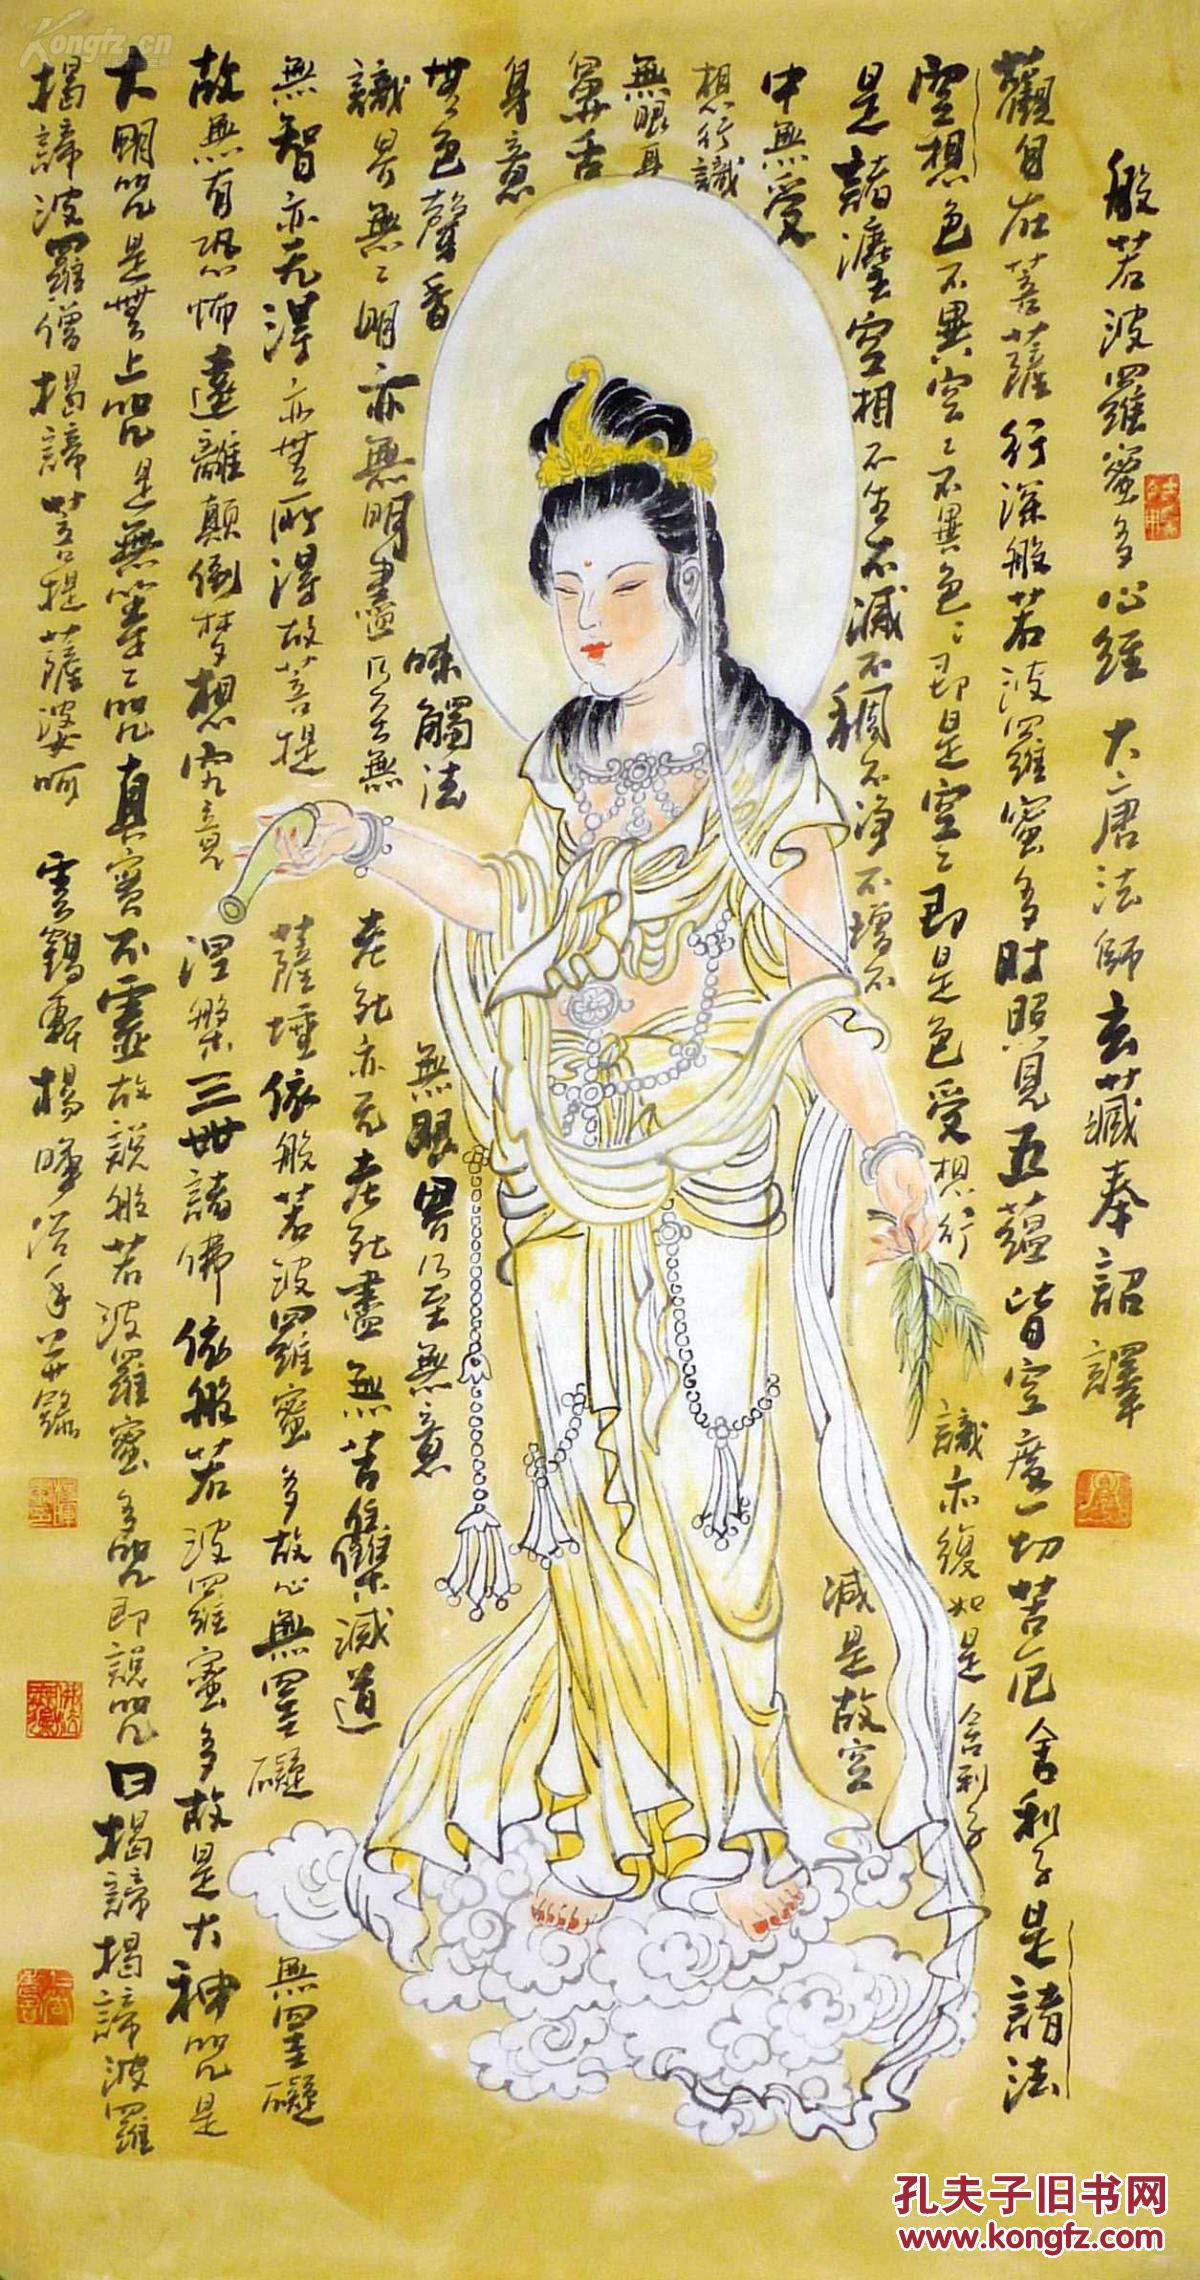 般若波羅蜜多心經 大唐法師玄藏奉詔譯
觀自在菩薩行深般若波羅蜜多時照見五蘊皆空度一切苦厄舍利子是諸法
空想色不異空〻不異色〻即是空〻即是色受想行識亦復如是舍利子
是諸法空相不生不滅不垢不净不增不減是故空
中無受
想行識
無眼耳
鼻舌
身意
無色聲香味觸法無眼界乃至無意
識界無〻明亦無明盡乃至無老死亦无老死盡無苦集滅道
無智亦无得亦無所得故菩提薩埵依般若波羅蜜多故心無罣礙無罣礙
故無有恐怖遠離顛倒梦想究竟涅槃三世諸佛依般若波羅蜜多故是大神咒是
大明咒是無上咒是無等〻咒真實不虛故說般若波羅蜜多咒即說咒曰揭諦揭諦波羅
揭諦波羅僧揭諦菩提薩婆呵 雲鶴軒楊
Kongfz.cn
孔夫子旧书网
www.kongfz.com